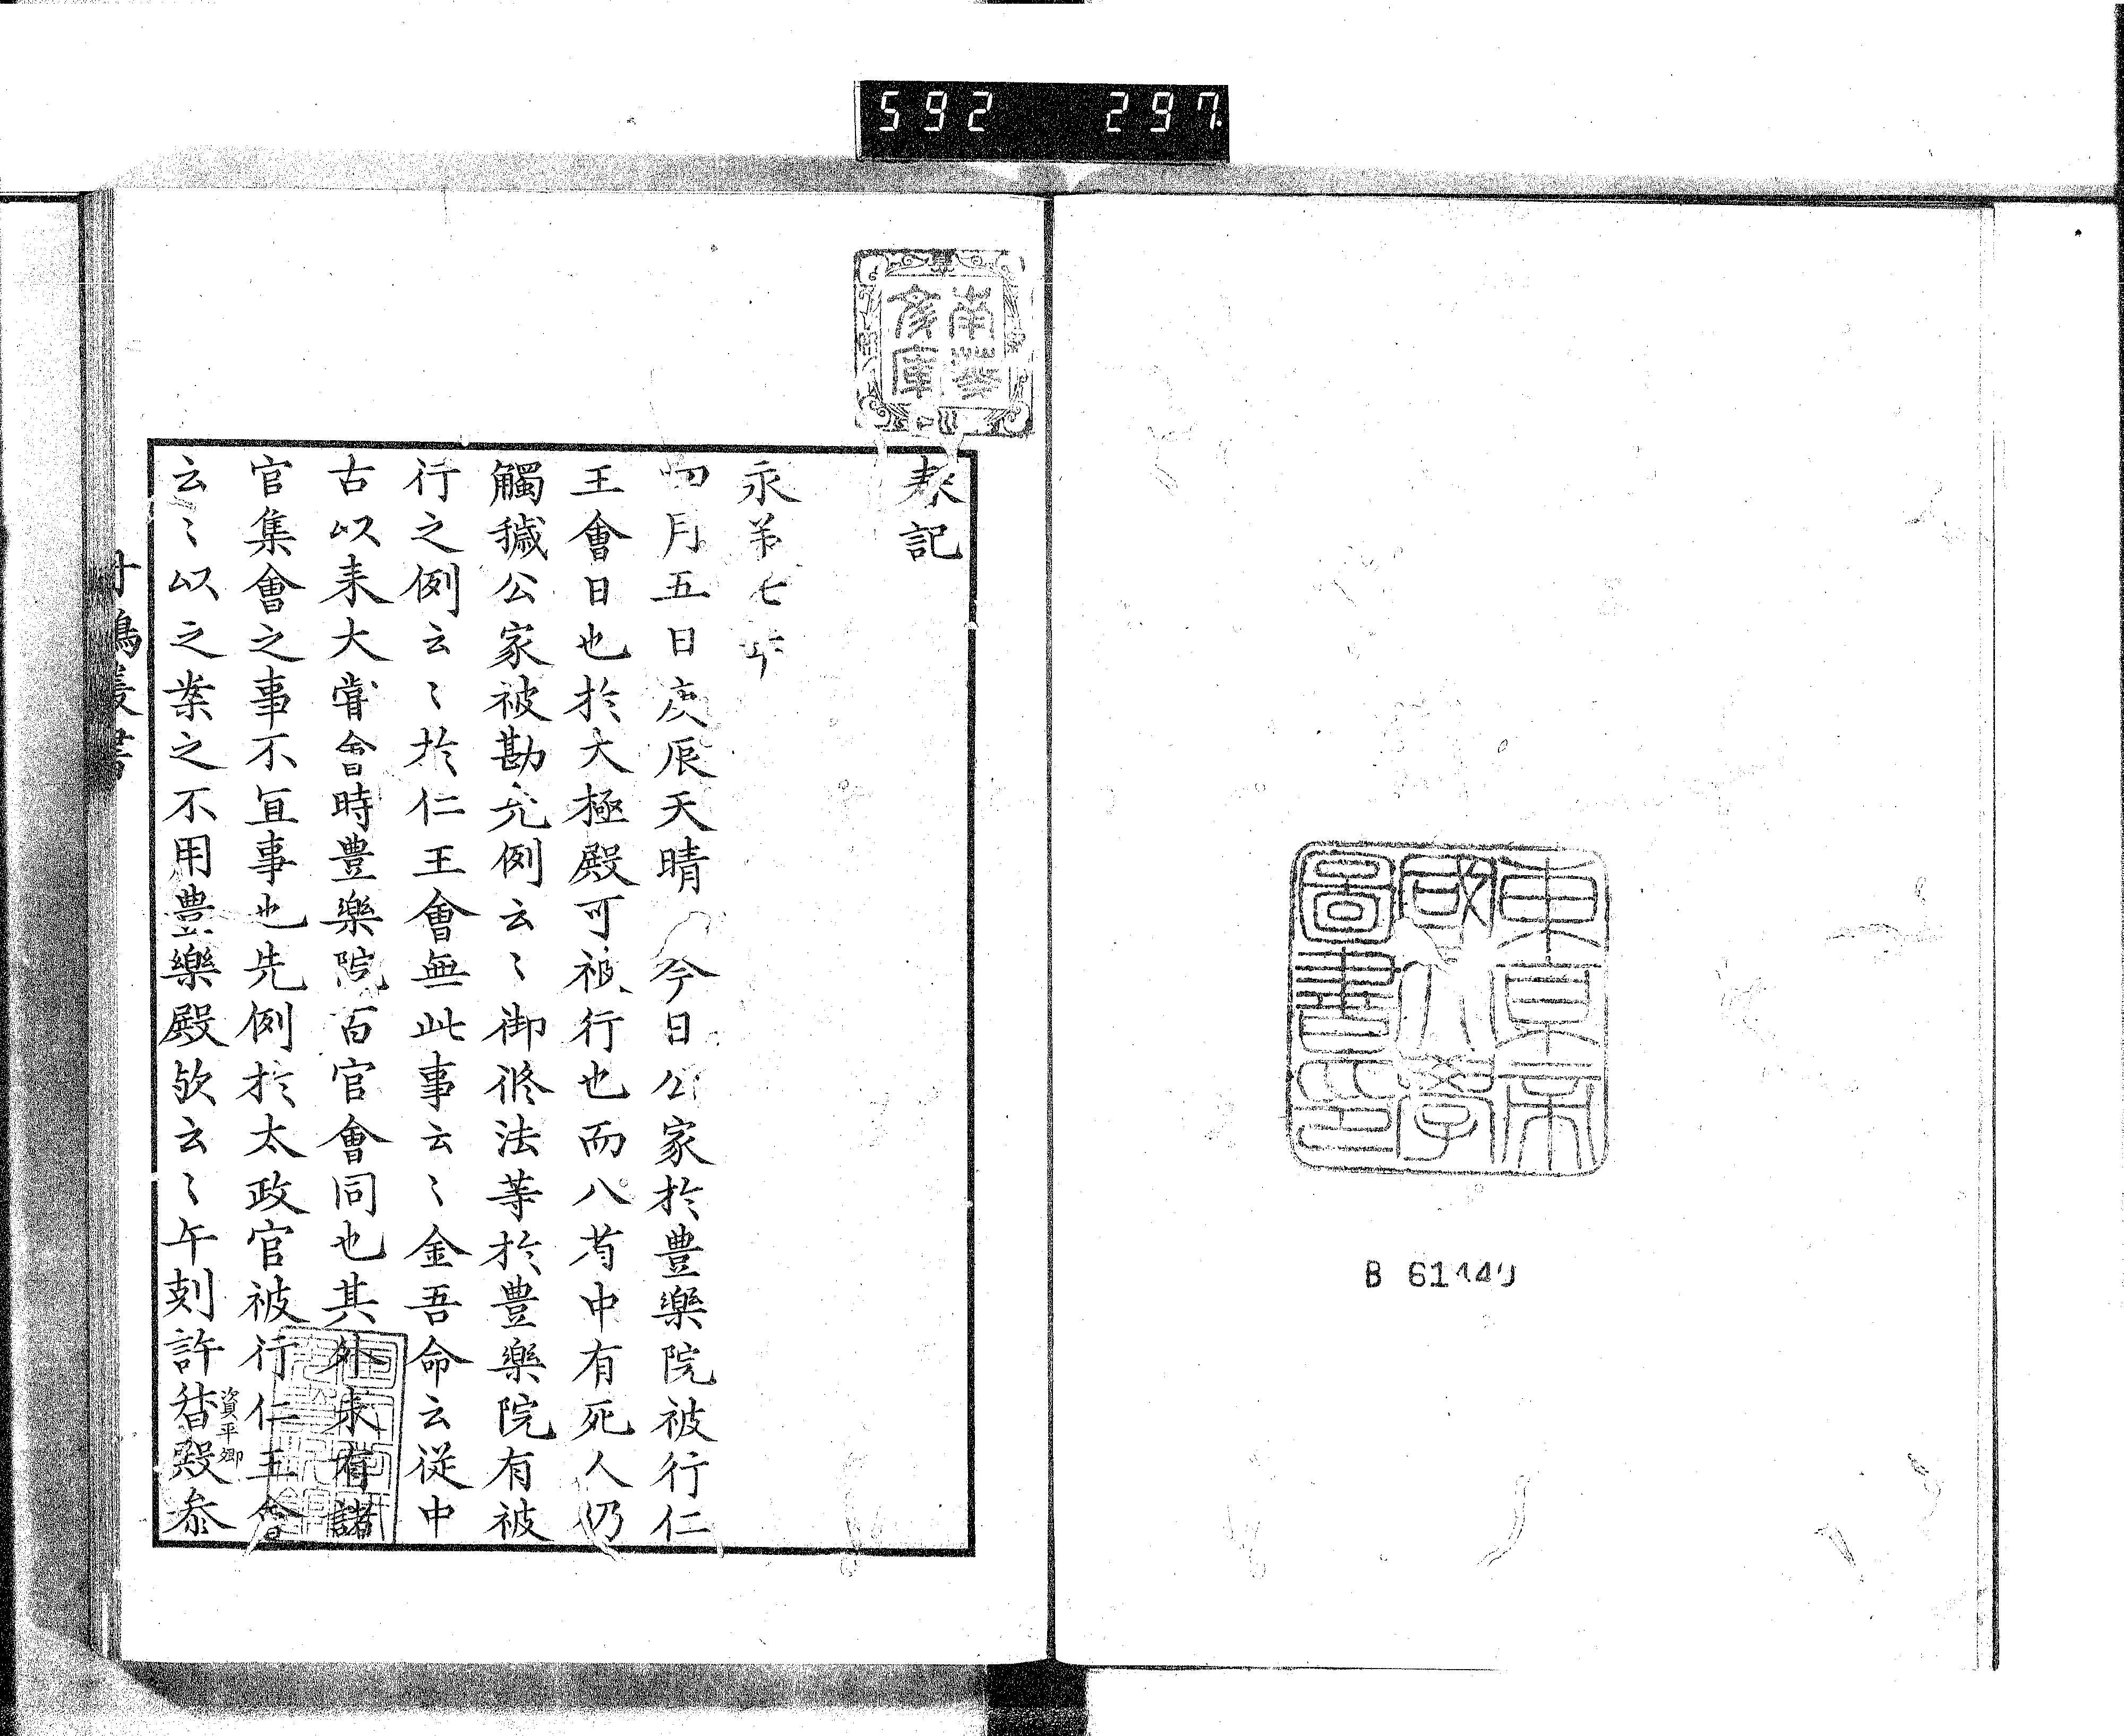 592 297
東京帝
國大學
圖書印
B 61440
南葵
文庫
春記
永承七年
四月五日庚辰天晴 今日公家於豊樂院被行仁
王會日也於大極殿可被行也而八省中有死人仍
觸穢公家被勘先例云〻御修法等於豊樂院有被
行之例云〻於仁王會無此事云〻金吾命云従中
古以来大嘗會時豊樂院百官會同也其外未有諸
官集會之事不冝事也先例於太政官被行仁王會
云〻以之案之不用豊樂殿欤云〻午剋許督殿参
資平卿
丹鶴叢書